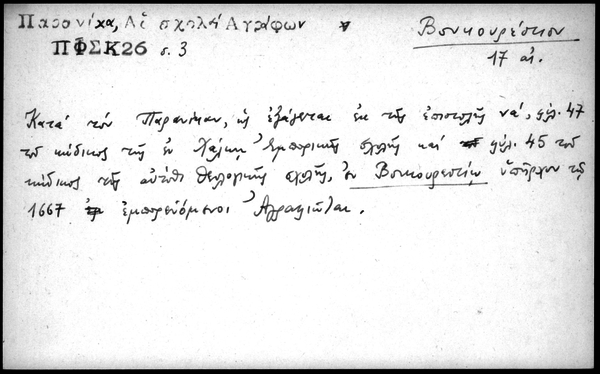 Παρανίκα, Αἱ σχολαί Αγράφων
Βουκουρέστιον
ΠΦΣΚ26 σ. 3
17 αἰ.
Κατά τόν Παρανίκαν, ὡς ἐξάγεται ἐκ τῆς ἐπιστολῆς να', φύλ. 47
τοῦ κώδικος τῆς ἐν Χάλκῃ Ἐμπορικῆς σχολῆς καί φύλ. 45 τοῦ
κώδικος τῆς αὐτόθι θεολογικῆς σχολῆς, ἐν Βουκουρεστίῳ ὑπῆρχον τῷ
1667 ἐμπορευόμενοι Ἀγραφιῶται.